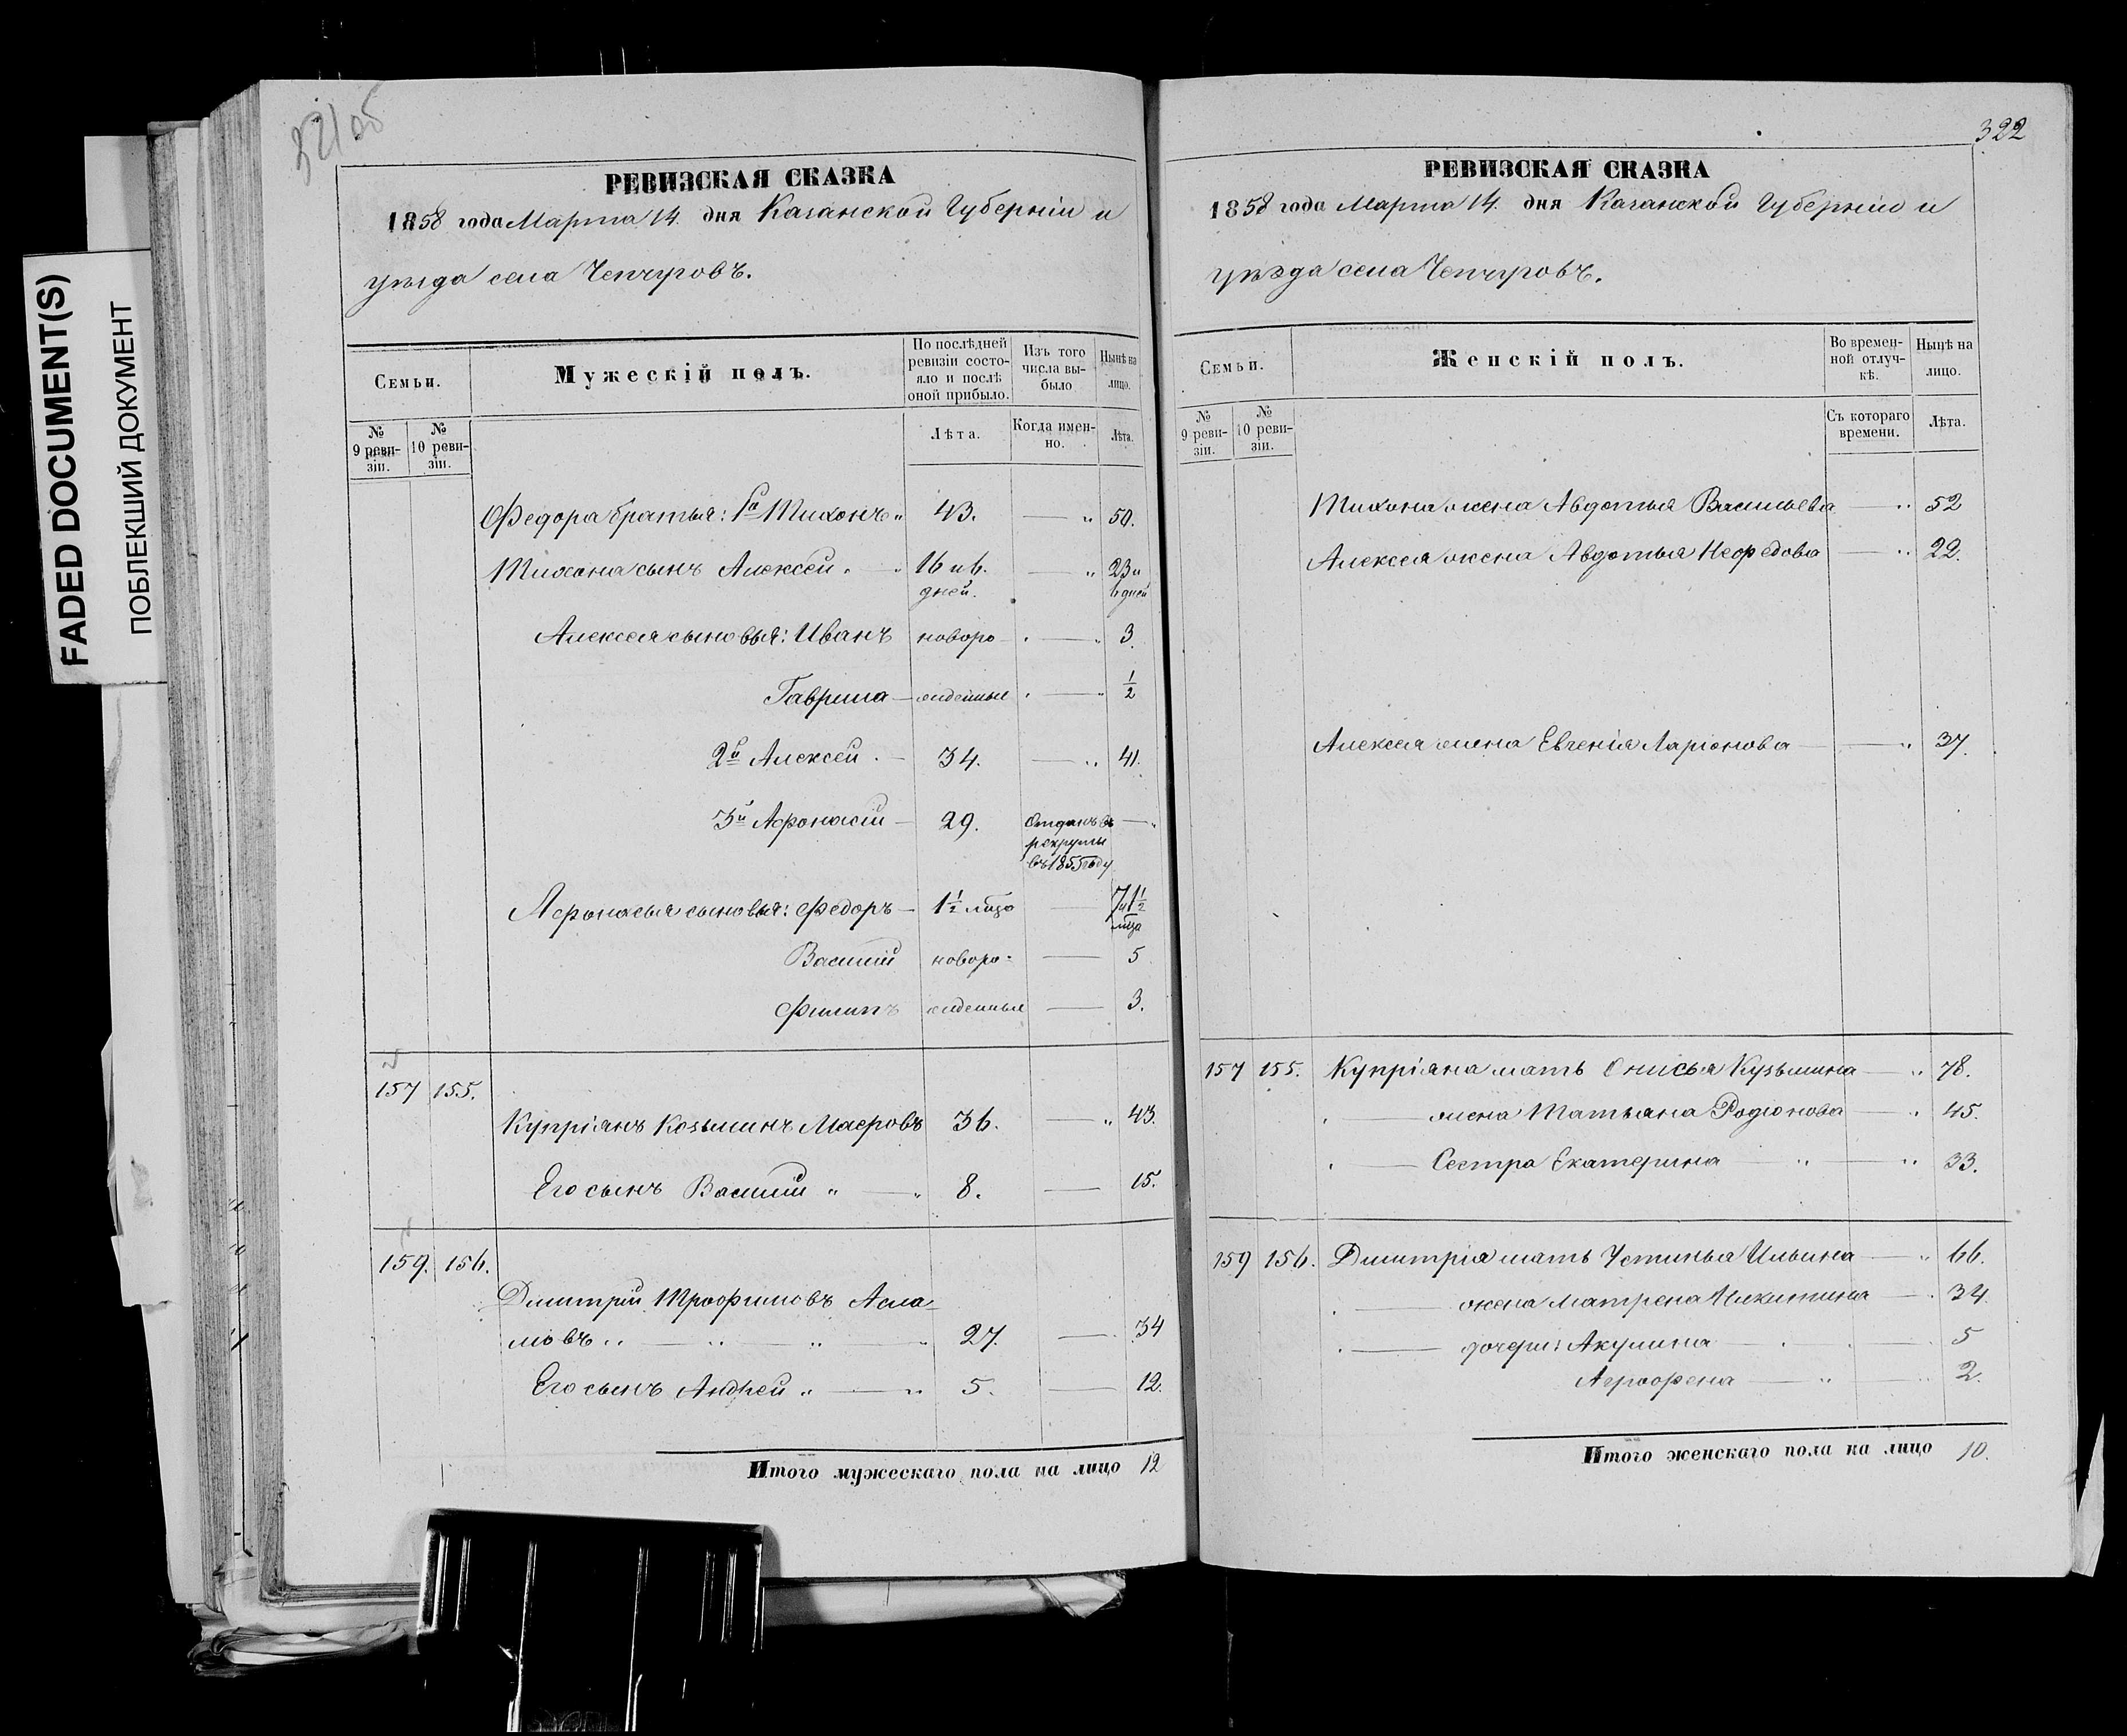 FADED DOCUMENT(S)
ПОБЛЕКШИЙ ДОКУМЕНТ
321об
РЕВИЗСКАЯ СКАЗКА
1858 года Марта 14. дня Казанской Губерніи и
уѣзда села Чепчуровъ.
Семьи.
Мужескій полъ.
По послѣдней ревизіи состояло и послѣ оной прибыло.
Изъ того числа выбыло
Нынѣ на лицо.
№ 9 ревизіи.
№ 10 ревизіи.
Лѣта.
Когда именно.
Лѣта.
Федора братья: 1й Тихонъ „ 43. — „ 50.
Тихона сынъ Алексей. „ 16 и 6. дней. — „ 23 и 6 дней
Алексея сыновья: Иванъ новоро- „ — „ 3.
Гаврила — жденные „ — „ 1/2
2й Алексей. — 34. — „ 41.
3й Афонасій — 29. Отданъ въ рекруты въ 1855 году — „
Афонасья сыновья: Федоръ — 1 1/2 мѣца — 7 и 1 1/2 мѣца
Василій новоро- — 5
Филипъ жденные — 3.
157 155.
Купріянъ Козьминъ 36. — „ 43.
Его сынъ Василій „ — „ 8. — 15.
159. 156.
Дмитрій Трофимовъ Асла-
мовъ „ — „ — „ — „ 27. — 34
Его сынъ Андрей „ — „ 5. — 12.
Итого мужескаго пола на лицо 12
322
РЕВИЗСКАЯ СКАЗКА
1858 года Марта 14. дня Казанской Губерніи и
уѣзда села Чепчуровъ.
Семьи.
Женскій полъ.
Во временной отлучкѣ.
Нынѣ на лицо.
№ 9 ревизіи.
№ 10 ревизіи.
Съ котораго времени.
Лѣта.
Тихона жена Авдотья Васильева — „ 52
Алексея жена Авдотья Нефедова — „ 22.
Алексея жена Евгенія Ларіонова — „ 37.
157 155. Купріяна мать Онисья Кузьмина — „ 78.
„ — жена Татьяна Родіонова — „ 45.
„ — Сестра Екатерина — „ — „ 33.
159 156. Дмитрія мать Устинья Ильина — „ 66.
„ — жена Матрена Никитина — „ 34.
„ — дочери: Акулина — „ — „ 5
Аграфена — „ — „ 2.
Итого женскаго пола на лицо 10.